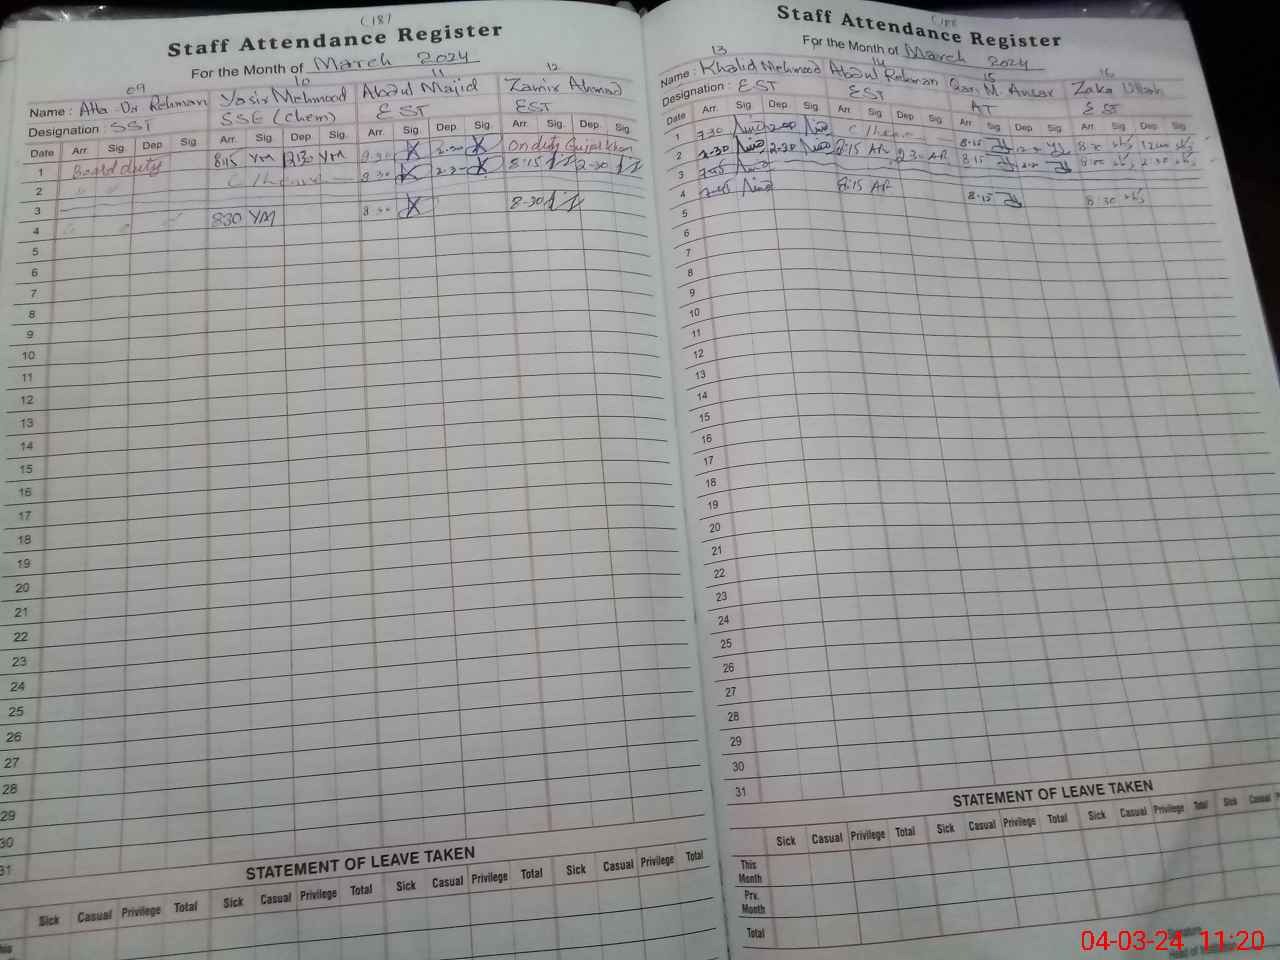 (18)
Staff Attendance Register
For the Month of March 2024
09 10 11 12
Name : Atta Ur Rehman Yasir Mehmood Abdul Majid Zamir Ahmad
Designation : SST SSE (Chem) EST EST
Date Arr. Sig. Dep Sig. Arr. Sig. Dep Sig. Arr. Sig. Dep Sig. Arr. Sig. Dep. Sig
1 Board duty 8:15 YM 2:30 YM On duty Gujar khan
2 8:15 2-30
3
4 830 YM 8-30
5
6
7
8
9
10
11
12
13
14
15
16
17
18
19
20
21
22
23
24
25
26
27
28
29
30
31
STATEMENT OF LEAVE TAKEN
Sick Casual Privilege Total Sick Casual Privilege Total Sick Casual Privilege Total Sick Casual Privilege Total
Staff Attendance Register
For the Month of March 2024
13 14 15 16
Name : Khalid Mehmood Abdul Rehman Qari M. Ansar Zaka Ullah
Designation : EST EST AT EST
Date Arr. Sig Dep Sig Arr. Sig Dep Sig Arr. Sig Dep Sig Arr. Sig Dep Sig
1 7-30 2-00 8-15
2 2-30 8:15 AR 2 30 AR 8-15
3 7-45
4 7-45 8:15 AR 8-15 8:30
5
6
7
8
9
10
11
12
13
14
15
16
17
18
19
20
21
22
23
24
25
26
27
28
29
30
31
STATEMENT OF LEAVE TAKEN
Sick Casual Privilege Total Sick Casual Privilege Total Sick Casual Privilege Total Sick Casual
This Month
Prv. Month
Total
Signature
Head of Institution
04-03-24 11:20